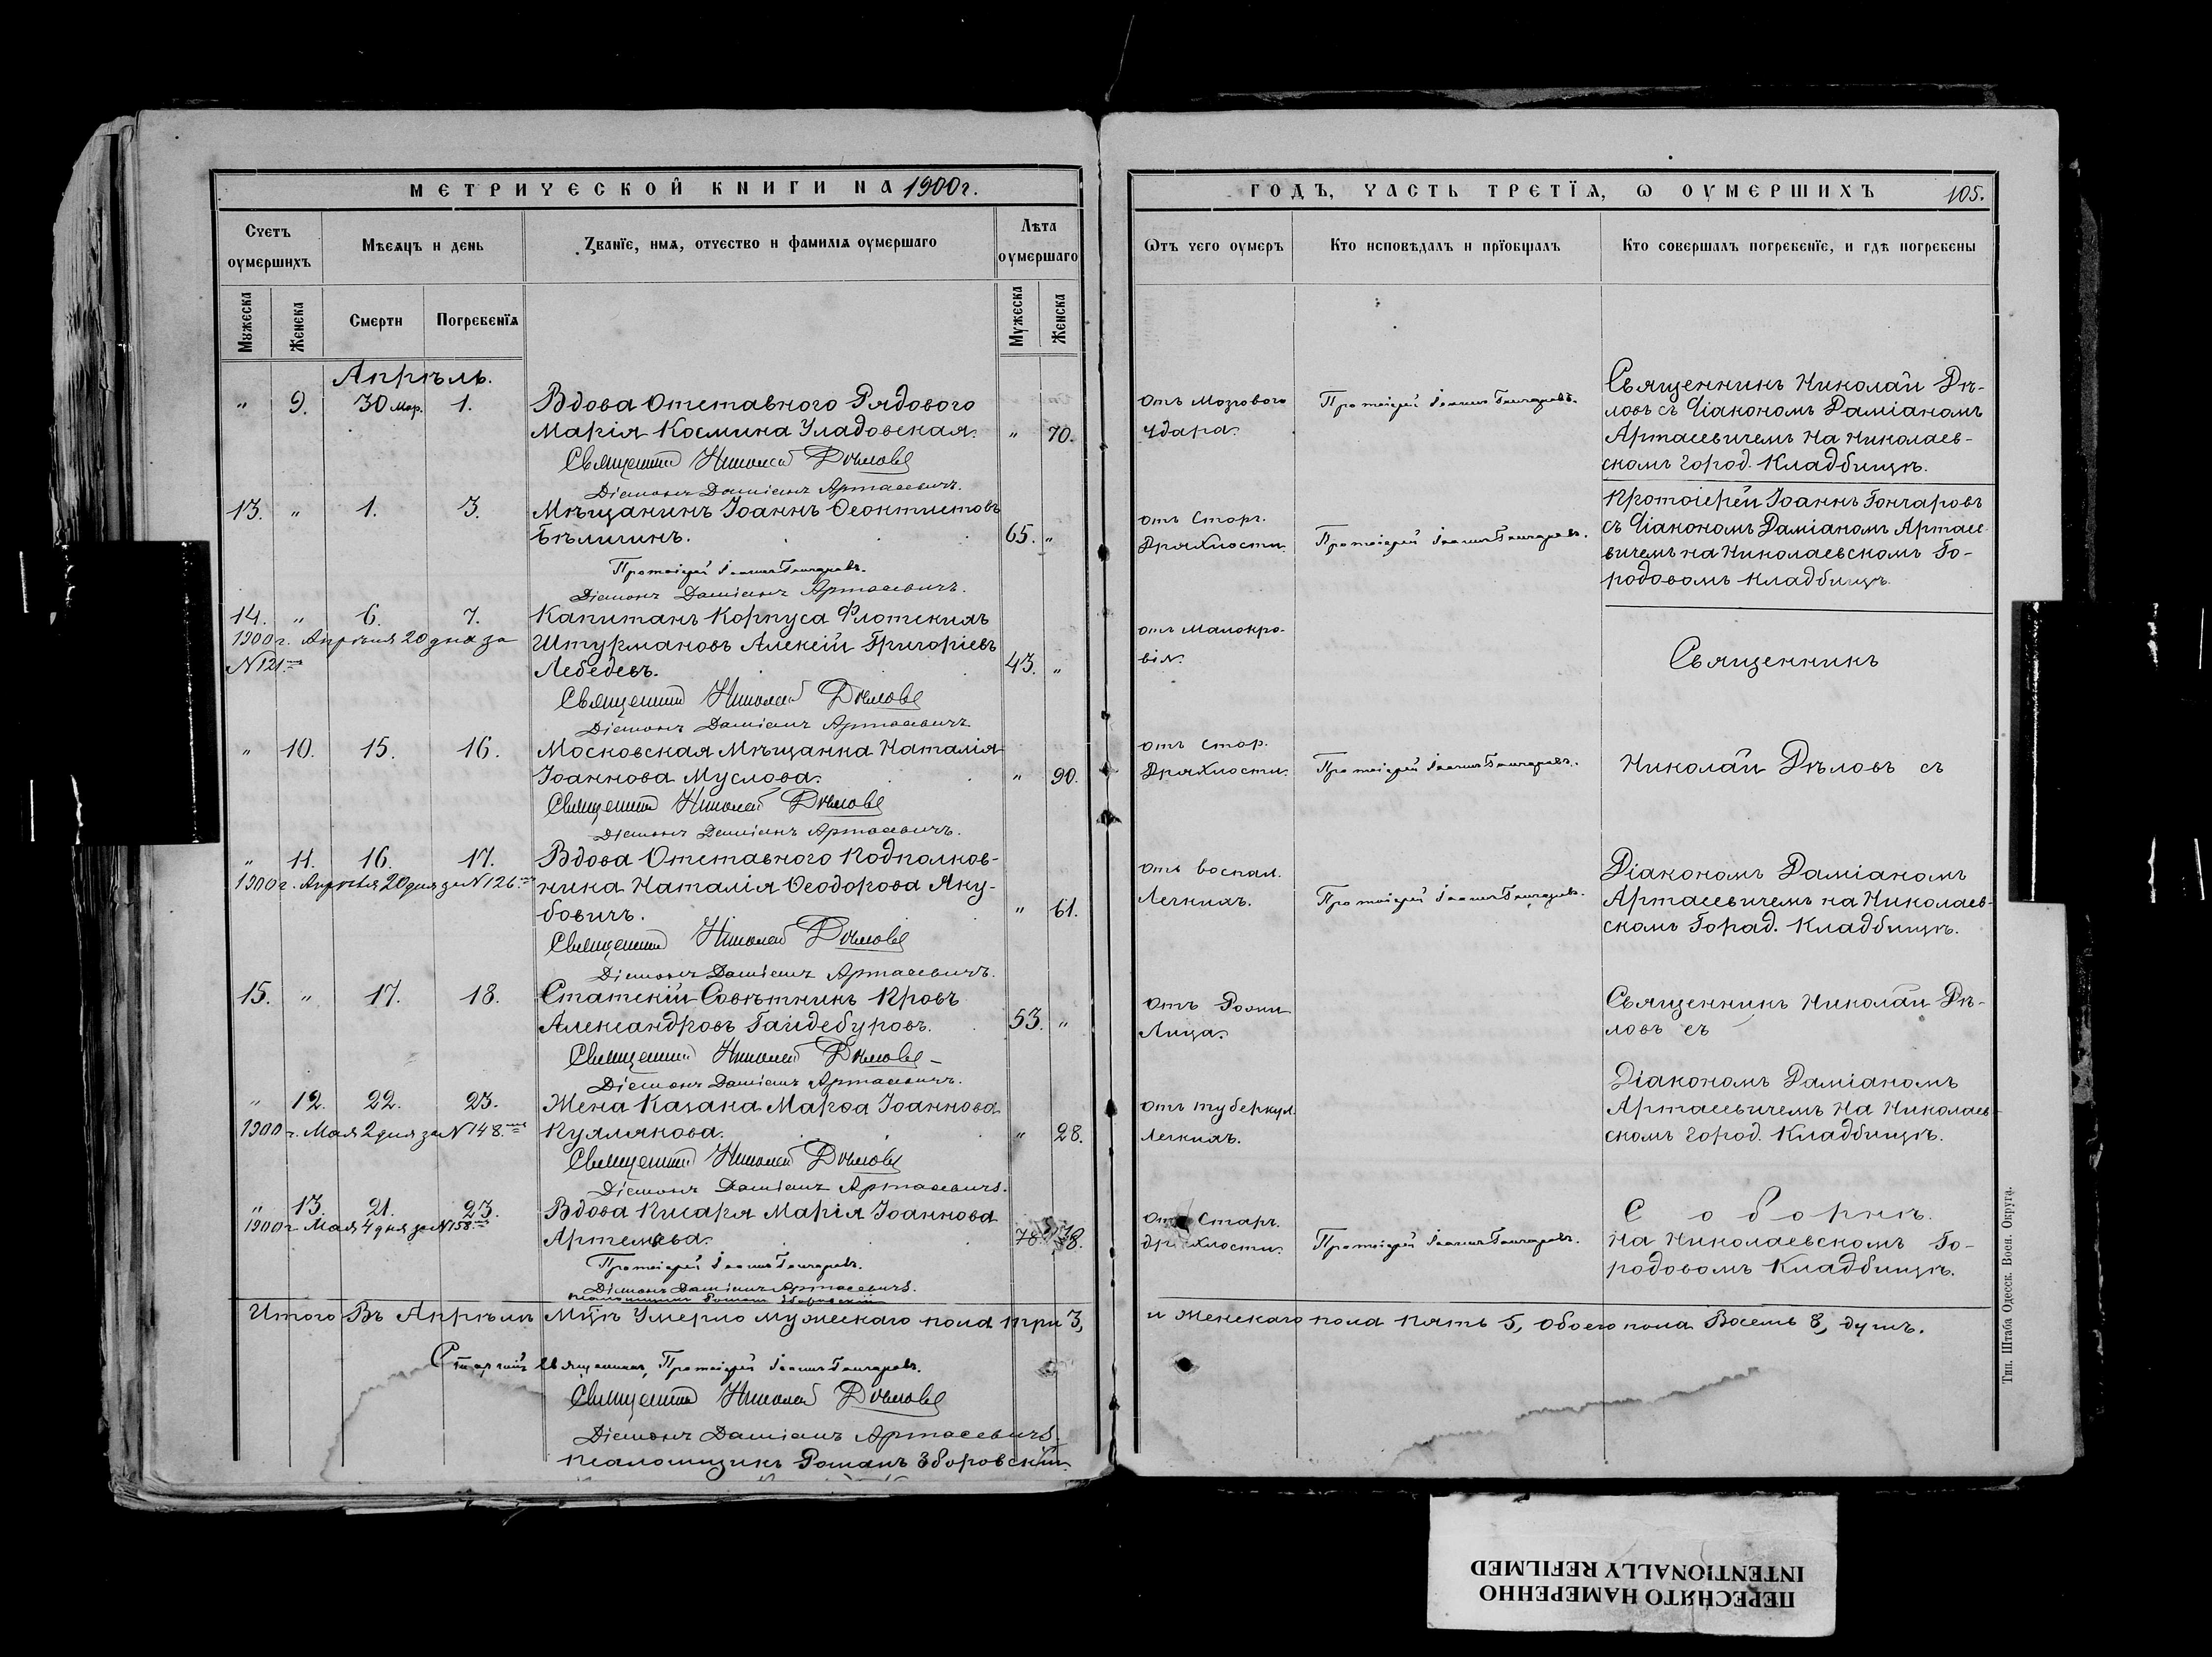 МЕТРИЧЕСКОЙ КНИГИ НА 1900 г.
Счетъ оумершихъ
Мѣсяцъ и день
Званїе, имя, отчество и фамилїя оумершаго
Лѣта оумершаго
Мужеска
Женска
Смерти
Погребенїя
Мужеска
Женска
Апрѣль.
" 9. 30 Мар. 1. Вдова Отставного Рядового
Марія Космина Уладовская. " 70.
Священникъ Николай Дѣловъ
Діаконъ Даміанъ Артасевичъ.
13. " 1. 3. Мѣщанинъ Іоаннъ Ѳеоктистовъ
Бѣлигинъ. 65. "
Протоіерей Іоаннъ Гончаровъ.
Діаконъ Даміанъ Артасевичъ.
14. " 6. 7. Капитанъ Корпуса Флотскихъ
1900 г. Апрѣля 20 дня за Штурмановъ Алексій Григоріевъ
№ 121. Лебедевъ. 43. "
Священникъ Николай Дѣловъ
Діаконъ Даміанъ Артасевичъ
" 10. 15. 16. Московская Мѣщанка Наталія
Іоаннова Муслова. " 90.
Священникъ Николай Дѣловъ
Діаконъ Даміанъ Артасевичъ.
" 11. 16. 17. Вдова Отставного Подполков-
1900 г. Апрѣля 20 дня за № 126. ника Наталія Ѳеодорова Яку-
бовичъ. " 61.
Священникъ Николай Дѣловъ
Діаконъ Даміанъ Артасевичъ.
15. " 17. 18. Статскій Совѣтникъ Провъ
Александровъ Гайдебуровъ. 53. "
Священникъ Николай Дѣловъ
Діаконъ Даміанъ Артасевичъ.
" 12. 22. 23. Жена Казака Марѳа Іоаннова
1900 г. Мая 2 дня за № 148. Куллякова. " 28.
Священникъ Николай Дѣловъ
Діаконъ Даміанъ Артасевичъ.
" 13. 21. 23. Вдова Писаря Марія Іоаннова
1900 г. Мая 4 дня за № 158. Артемьева. 78. 78.
Протоіерей Іоаннъ Гончаровъ.
Діаконъ Даміанъ Артасевичъ.
Псаломщикъ Романъ Зборовскій
Итого Въ Апрѣлѣ Мцѣ Умерло мужескаго пола три 3,
Старшій Священникъ, Протоіерей Іоаннъ Гончаровъ.
Священникъ Николай Дѣловъ
Діаконъ Даміанъ Артасевичъ.
Псаломщикъ Романъ Зборовскій.
ГОДЪ, ЧАСТЬ ТРЕТЇЯ, Ѡ ОУМЕРШИХЪ 105.
Ѿтъ чего оумеръ
Кто исповѣдалъ и прїобщалъ
Кто совершалъ погребенїе, и гдѣ погребены
отъ Мозгового Удара.
Протоіерей Іоаннъ Гончаровъ.
Священникъ Николай Дѣ-
ловъ съ Діакономъ Даміаномъ
Артасевичемъ на Николаев-
скомъ город. Кладбищѣ.
отъ Старч.
Дряхлости.
Протоіерей Іоаннъ Гончаровъ.
Протоіерей Іоаннъ Гончаровъ
съ Діакономъ Даміаном Артасе
вичемъ на Николаевскомъ Го-
родовомъ кладбищѣ.
отъ Малокро-
вія.
Священникъ
отъ Стар.
Дряхлости.
Протоіерей Іоаннъ Гончаровъ.
Николай Дѣловъ съ
отъ воспал.
Легкихъ.
Протоіерей Іоаннъ Гончаровъ.
Діакономъ Даміаномъ
Артасевичемъ на Николаев-
скомъ Город. Кладбищѣ.
отъ Рожи
Лица.
Священникъ Николай Дѣ-
ловъ съ
Діакономъ Даміаномъ
Артасевичемъ на Николаев-
скомъ город. Кладбищѣ.
отъ туберкул.
Легкихъ.
отъ Старч.
дряхлости.
Протоіерей Іоаннъ Гончаровъ.
Соборнѣ.
на Николаевскомъ Го-
родовомъ Кладбищѣ.
и Женскаго пола Пять 5, обоего пола Восемь 8, душъ.
Тип. Штаба Одесск. Воен. Округа.
ПЕРЕСНЯТО НАМЕРЕННО
INTENTIONALLY REFILMED